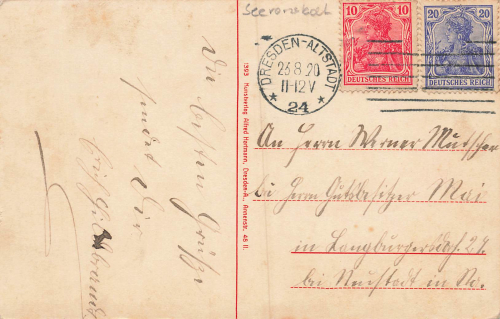 Die besten Grüße
sendet Dir
1393 Kunstverlag Alfred Hartmann, Dresden-A., Annenstr. 45 II.
10 10
DEUTSCHES REICH
20 20
DEUTSCHES REICH
DRESDEN-ALTSTADT
23.8.20
11-12V
* 24 *
An Herrn Werner Mutscher
bei Herrn Gutsbesitzer Mai
in Langburgersdf.
bei Neustadt in Sa.